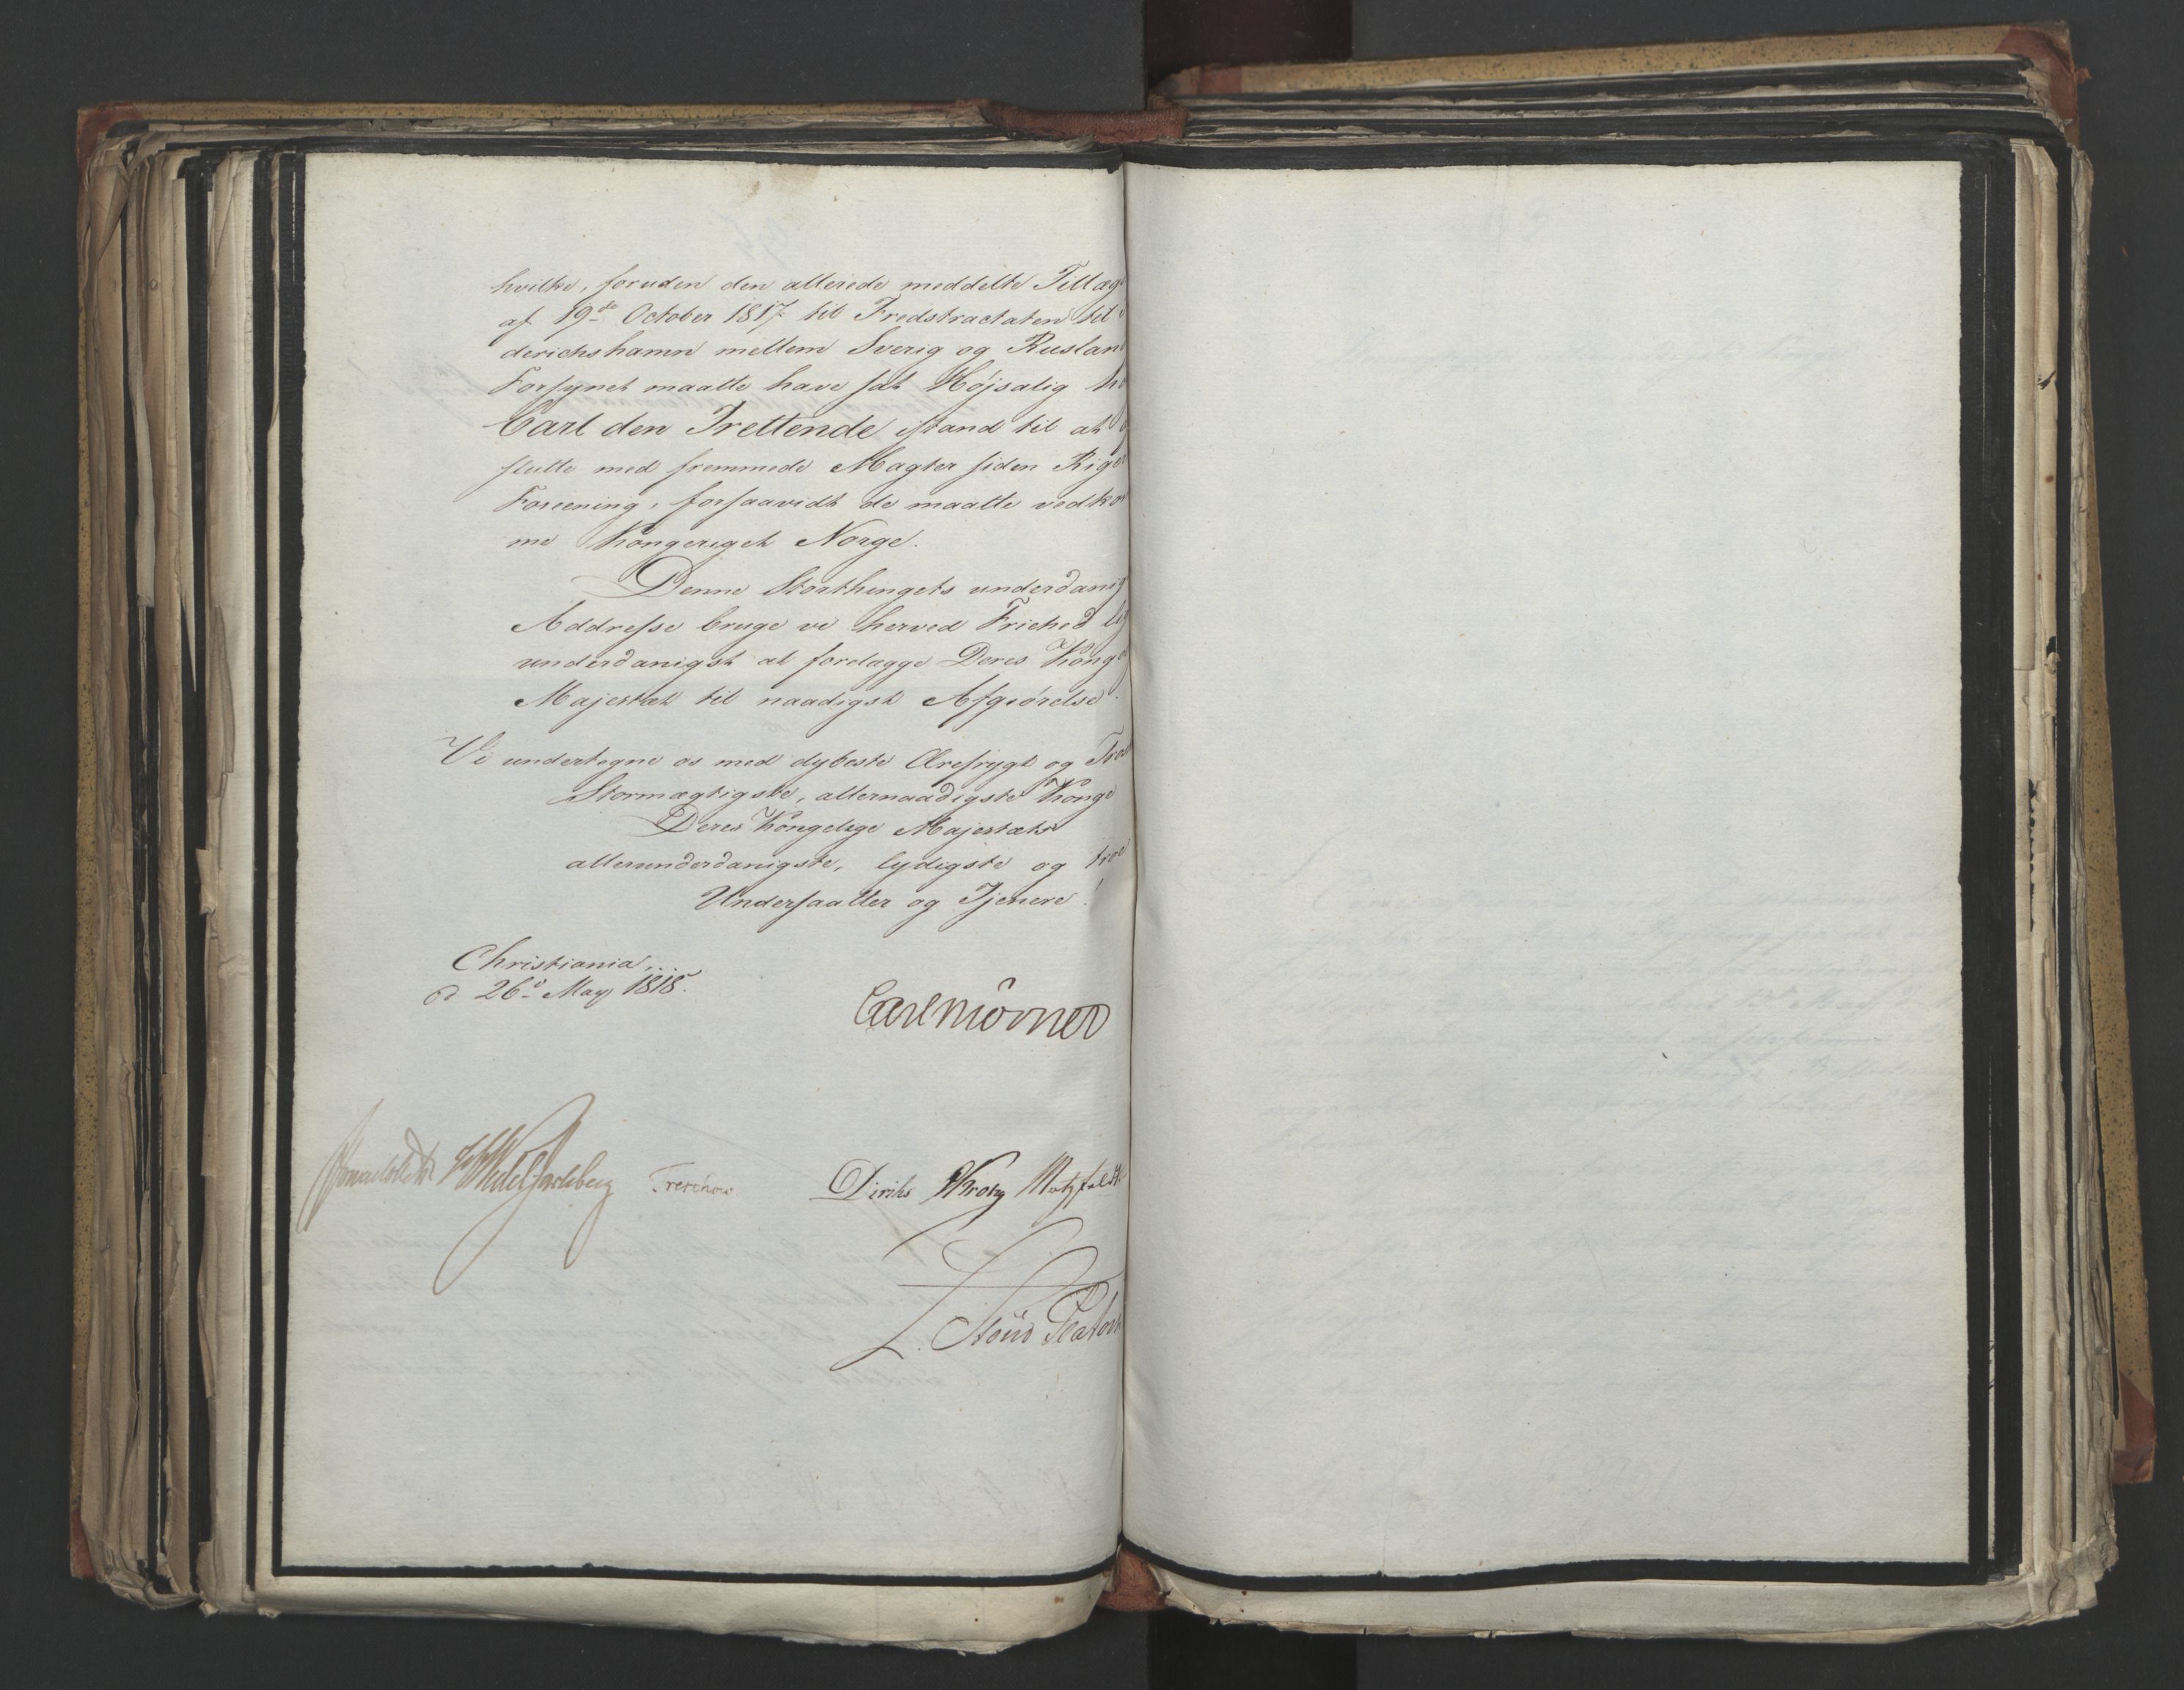 hvilke, foruden den allerede meddelte Tillæg
af 19de October 1817 til Fredstractaten til
derichshamn mellem Sverig og Rusland
Forsynet maatte have sat Højsalig
Carl den Trettende istand til at
slutte med fremmede Magter siden Riger
Foreening, forsaavidt de maatte vedkom
me Kongeriget Norge.
Denne Storthingets underdanig
Addresse bruge vi herved Friehed
underdanigst at forelægge Deres Konge
Majestæt til naadigst Afgiørelse.
Vi undertegne os med dybeste Ærefrygt og Tro
Stormægtigste, allernaadigste Konge
Deres Kongelige Majestæts
allerunderdanigste, lydigste og troe
Undersaatter og Tjenere!
Christiania,
d 26d May 1818.
Carl Mörner
Sommerhielm HWedel Jarlsberg Treschow Diriks Krog Motzfeldt
L. Stöud Platou